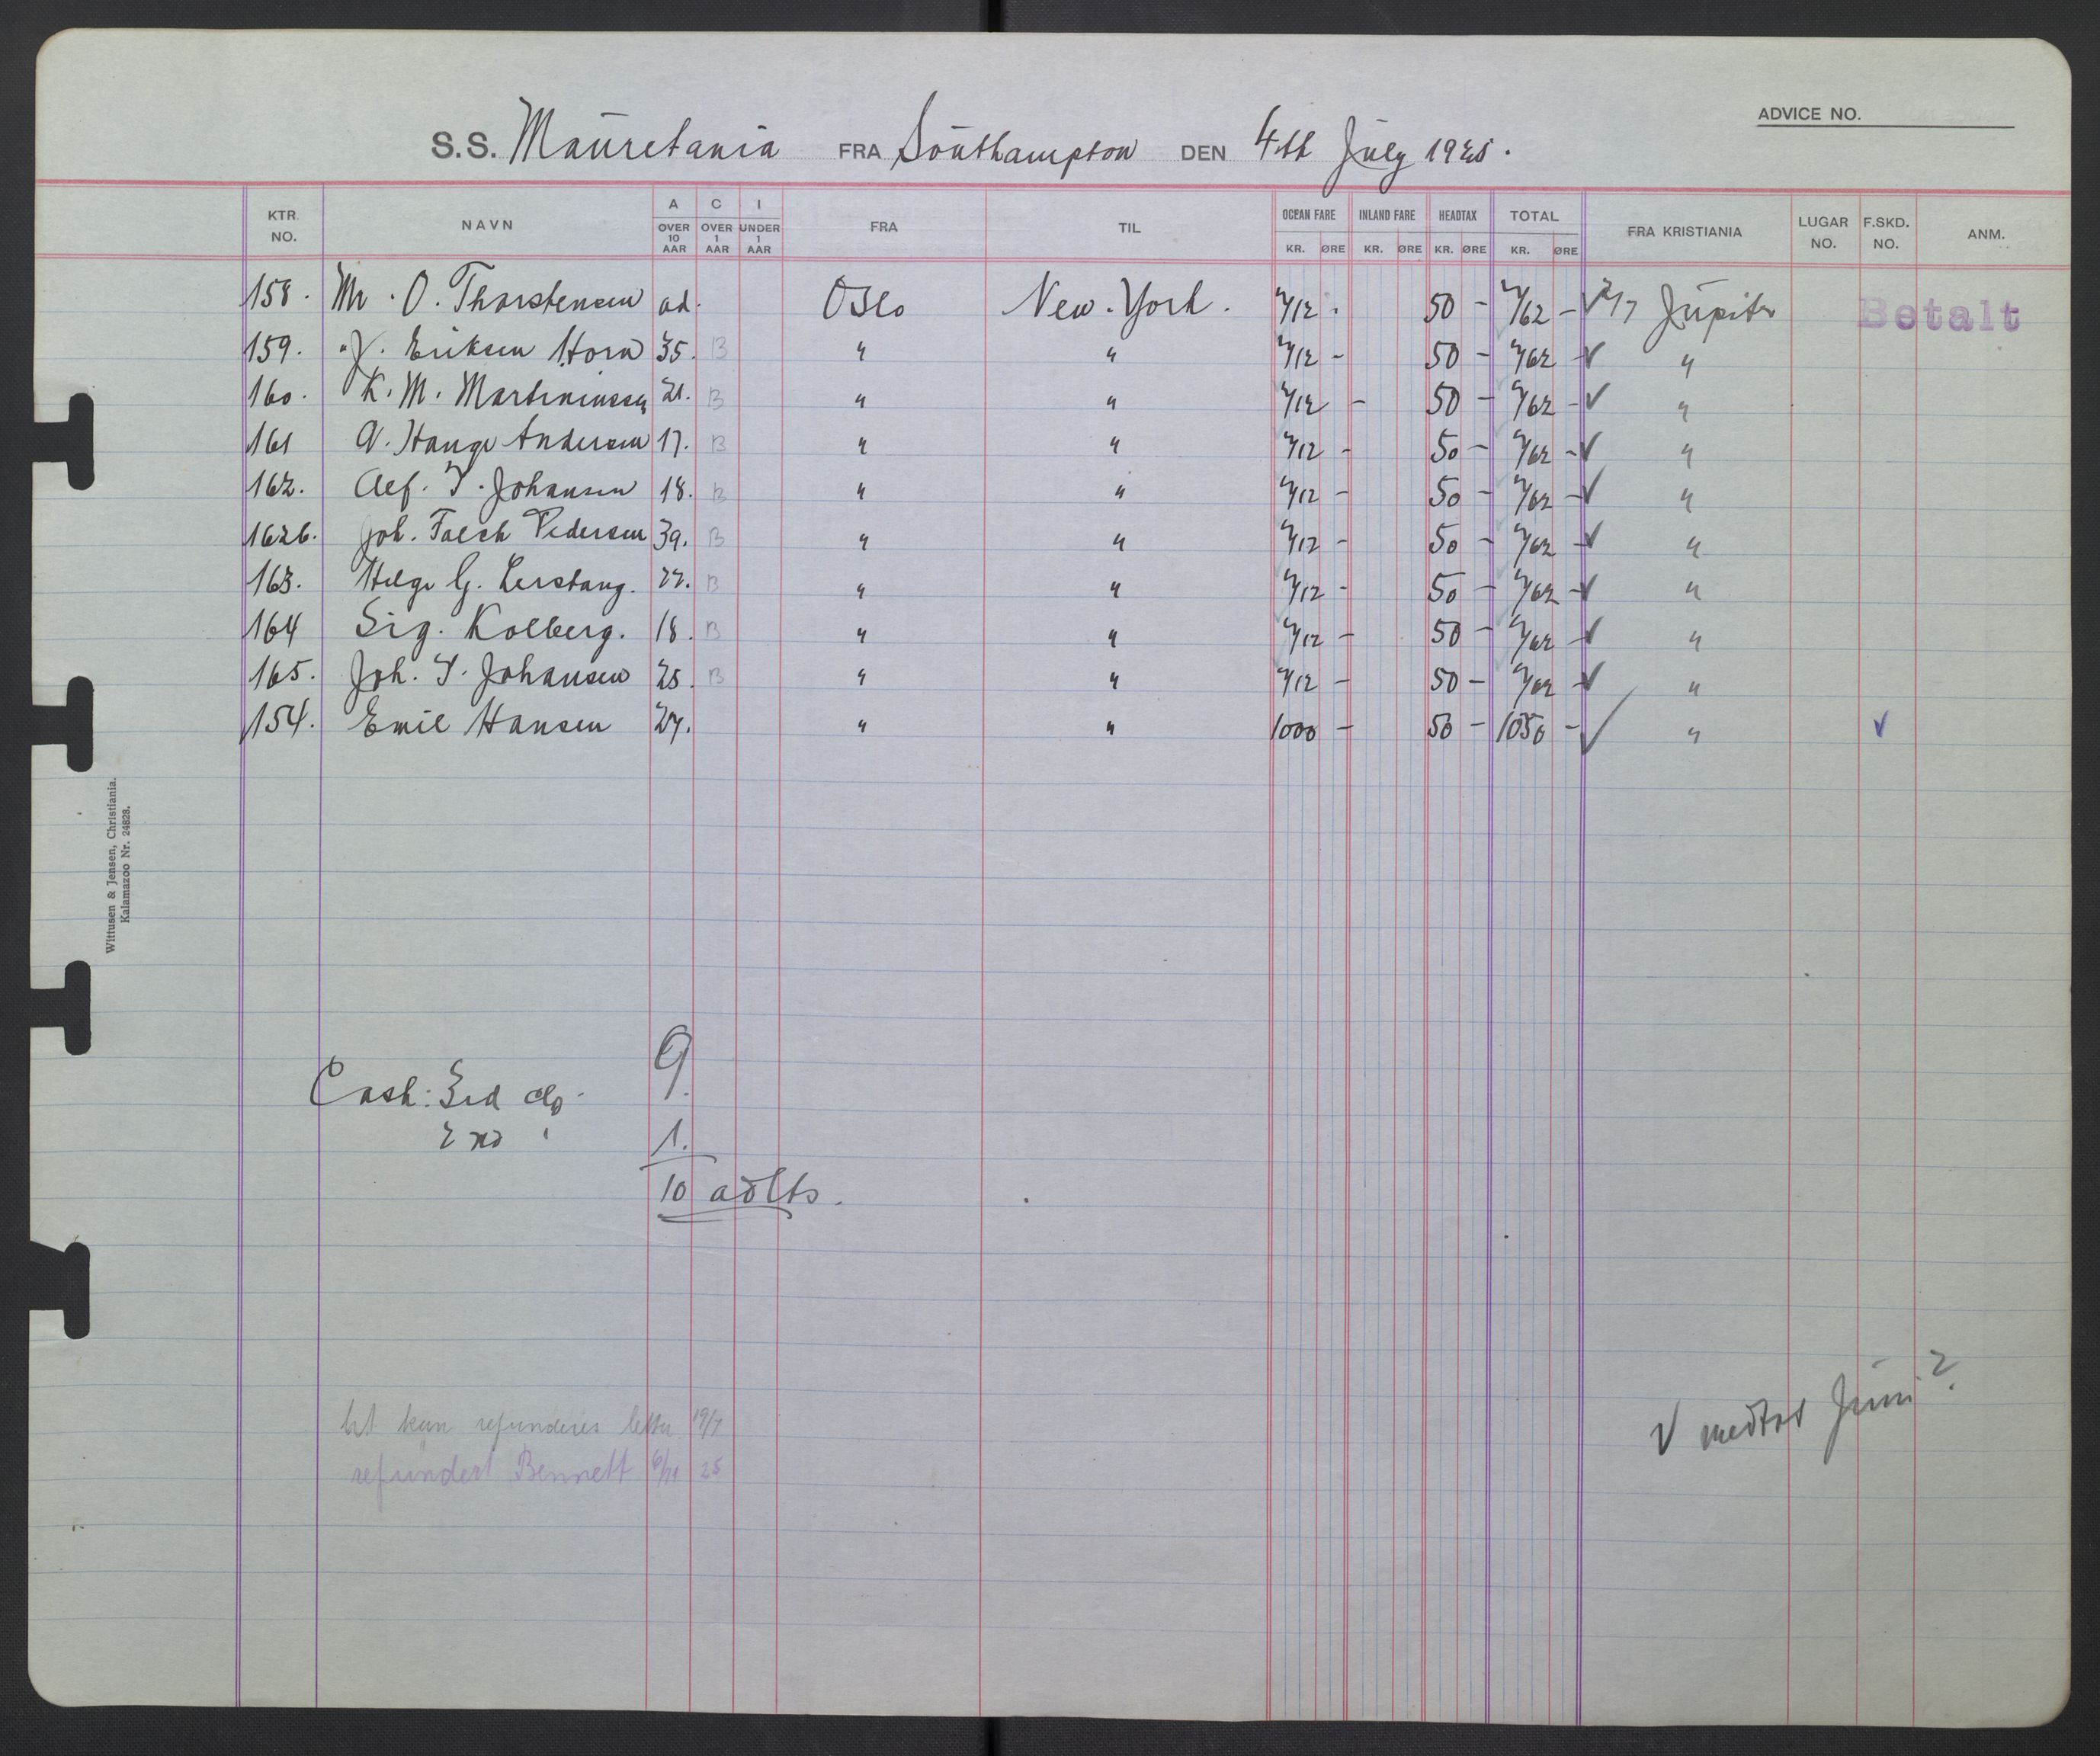 ADVICE NO.
S.S. Mauretania FRA Southampton DEN 4th July 1925.
KTR. NO. NAVN A OVER 10 AAR C OVER 1 AAR I UNDER 1 AAR FRA TIL OCEAN FARE KR. ØRE INLAND FARE KR. ØRE HEADTAX KR. ØRE TOTAL KR. ØRE FRA KRISTIANIA LUGAR NO. F.SKD. NO. ANM.
158. Mr. O. Thorstensen ad. Oslo New-York. 712. 50 - 762 - ✓ 2/7 Jupiter Betalt
159. " J. Eriksen Horn 35. B " " 712 - 50 - 762 - ✓ "
160. K. M. Martiniussen 21. B " " 712 - 50 - 762 - ✓ "
161 A. Hauge Andersen 17. B " " 712 - 50 - 762 - ✓ "
162. Alf. T. Johansen 18. B " " 712 - 50 - 762 - ✓ "
162b. Joh. Falch Pedersen 39. B " " 712 - 50 - 762 - ✓ "
163. Helge G. Lerstang. 22. B " " 712 - 50 - 762 - ✓ "
164 Sig. Kolberg. 18. B " " 712 - 50 - 762 - ✓ "
165. Joh. T. Johansen 25. B " " 712 - 50 - 762 - ✓ "
154. Emil Hansen 27. " " 1000 - 50 - 1050 - ✓ " ✓
Wittusen & Jensen, Christiania.
Kalamazoo Nr. 24828.
Cash: 3rd clp. 9.
2nd " 1.
10 adlts.
V medtat Juni?
kan refunderes letter 19/7
refundert Bennett 6/11 25